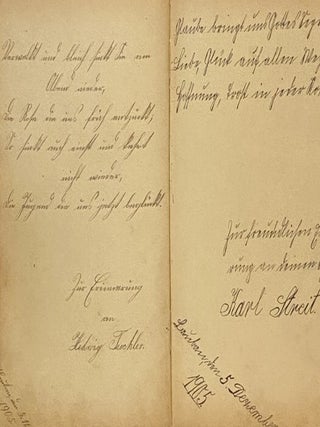 Verwelkt und bleich sinkt sie am
Abend nieder,
die Rose die uns früh entzückt;
So sinkt auch einst und kehrt
nicht wieder,
die Jugend die uns jetzt beglückt.
Zur Erinnerung
an
Hedwig
1905
Glaube bringt uns Gottes
Liebe, Glück auf allen
Hoffnung, Trost in jeder
Zur freundlichen
rung an deinen
Karl Streit.
Lauban, den 5. Dezember
1905